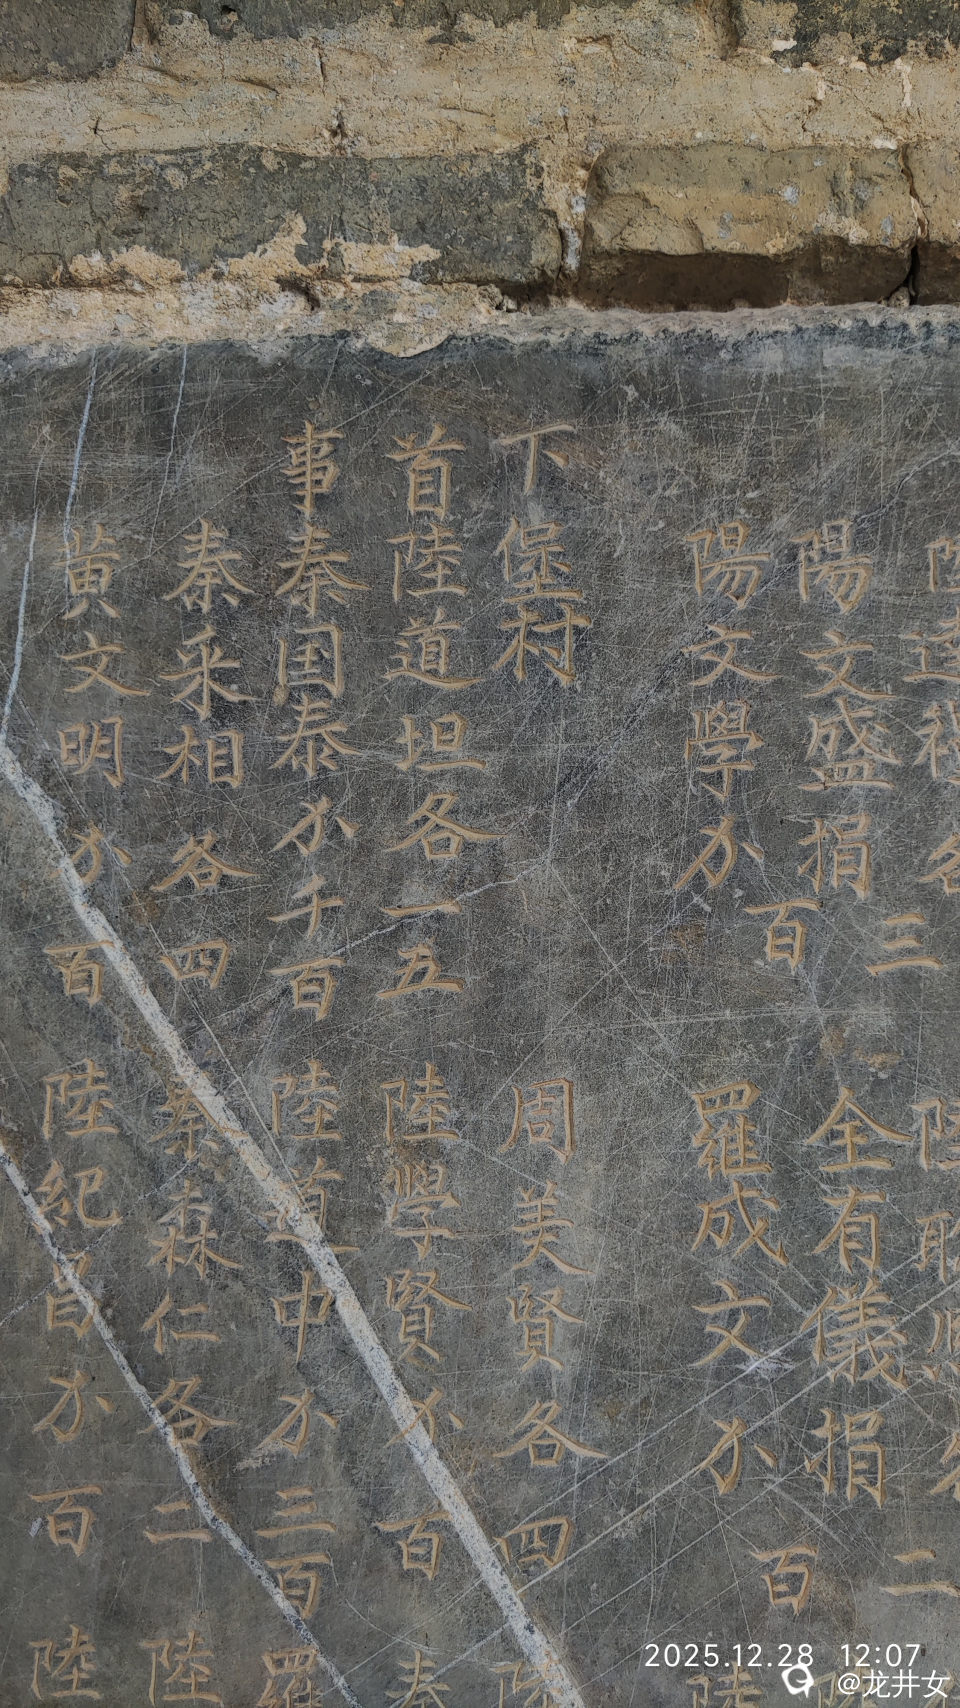 陽文盛捐 三 全有儀捐 二
陽文學 百 羅成文 百 陸
下堡村 周美賢各四 陸
首陸道坦各一五 陸學賢 百 秦
事秦国泰 千百 陸道中 三百 羅
秦采相各四 秦森仁各二 陸
黄文明 百 陸紀昌 百 陸
2025.12.28 12:07
@龙井女